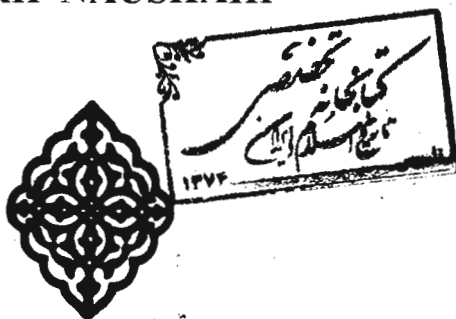 NAUSHAHI
کتابخانه تخصصی
تاریخ اسلام و ایران
۱۳۷۴